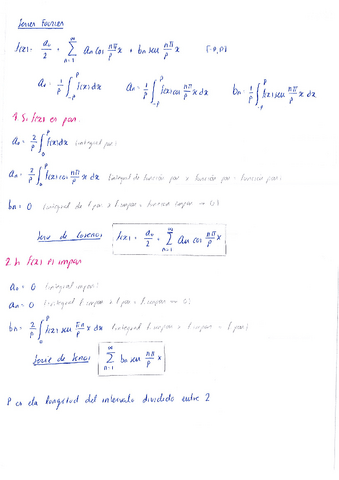 Series Fourier
f(x) = a₀/2 + ∑_{n=1}^{∞} aₙ cos nπ/p x + bₙ sen nπ/p x [-p,p]
a₀ = 1/p ∫_{-p}^{p} f(x) dx aₙ = 1/p ∫_{-p}^{p} f(x) cos nπ/p x dx bₙ = 1/p ∫_{-p}^{p} f(x) sen nπ/p x dx
1. Si f(x) es par
a₀ = 2/p ∫_{0}^{p} f(x) dx (integral par)
aₙ = 2/p ∫_{0}^{p} f(x) cos nπ/p x dx (integral de función par x función par = función par)
bₙ = 0 (integral de f par x f impar = función impar → 0)
Serie de Cosenos f(x) = a₀/2 + ∑_{n=1}^{∞} aₙ cos nπ/p x
2. Si f(x) es impar
a₀ = 0 (integral impar)
aₙ = 0 (integral f impar x f par = f impar → 0)
bₙ = 2/p ∫_{0}^{p} f(x) sen nπ/p x dx (integral f impar x f impar = f par)
Serie de Senos ∑_{n=1}^{∞} bₙ sen nπ/p x
P es la longitud del intervalo dividido entre 2